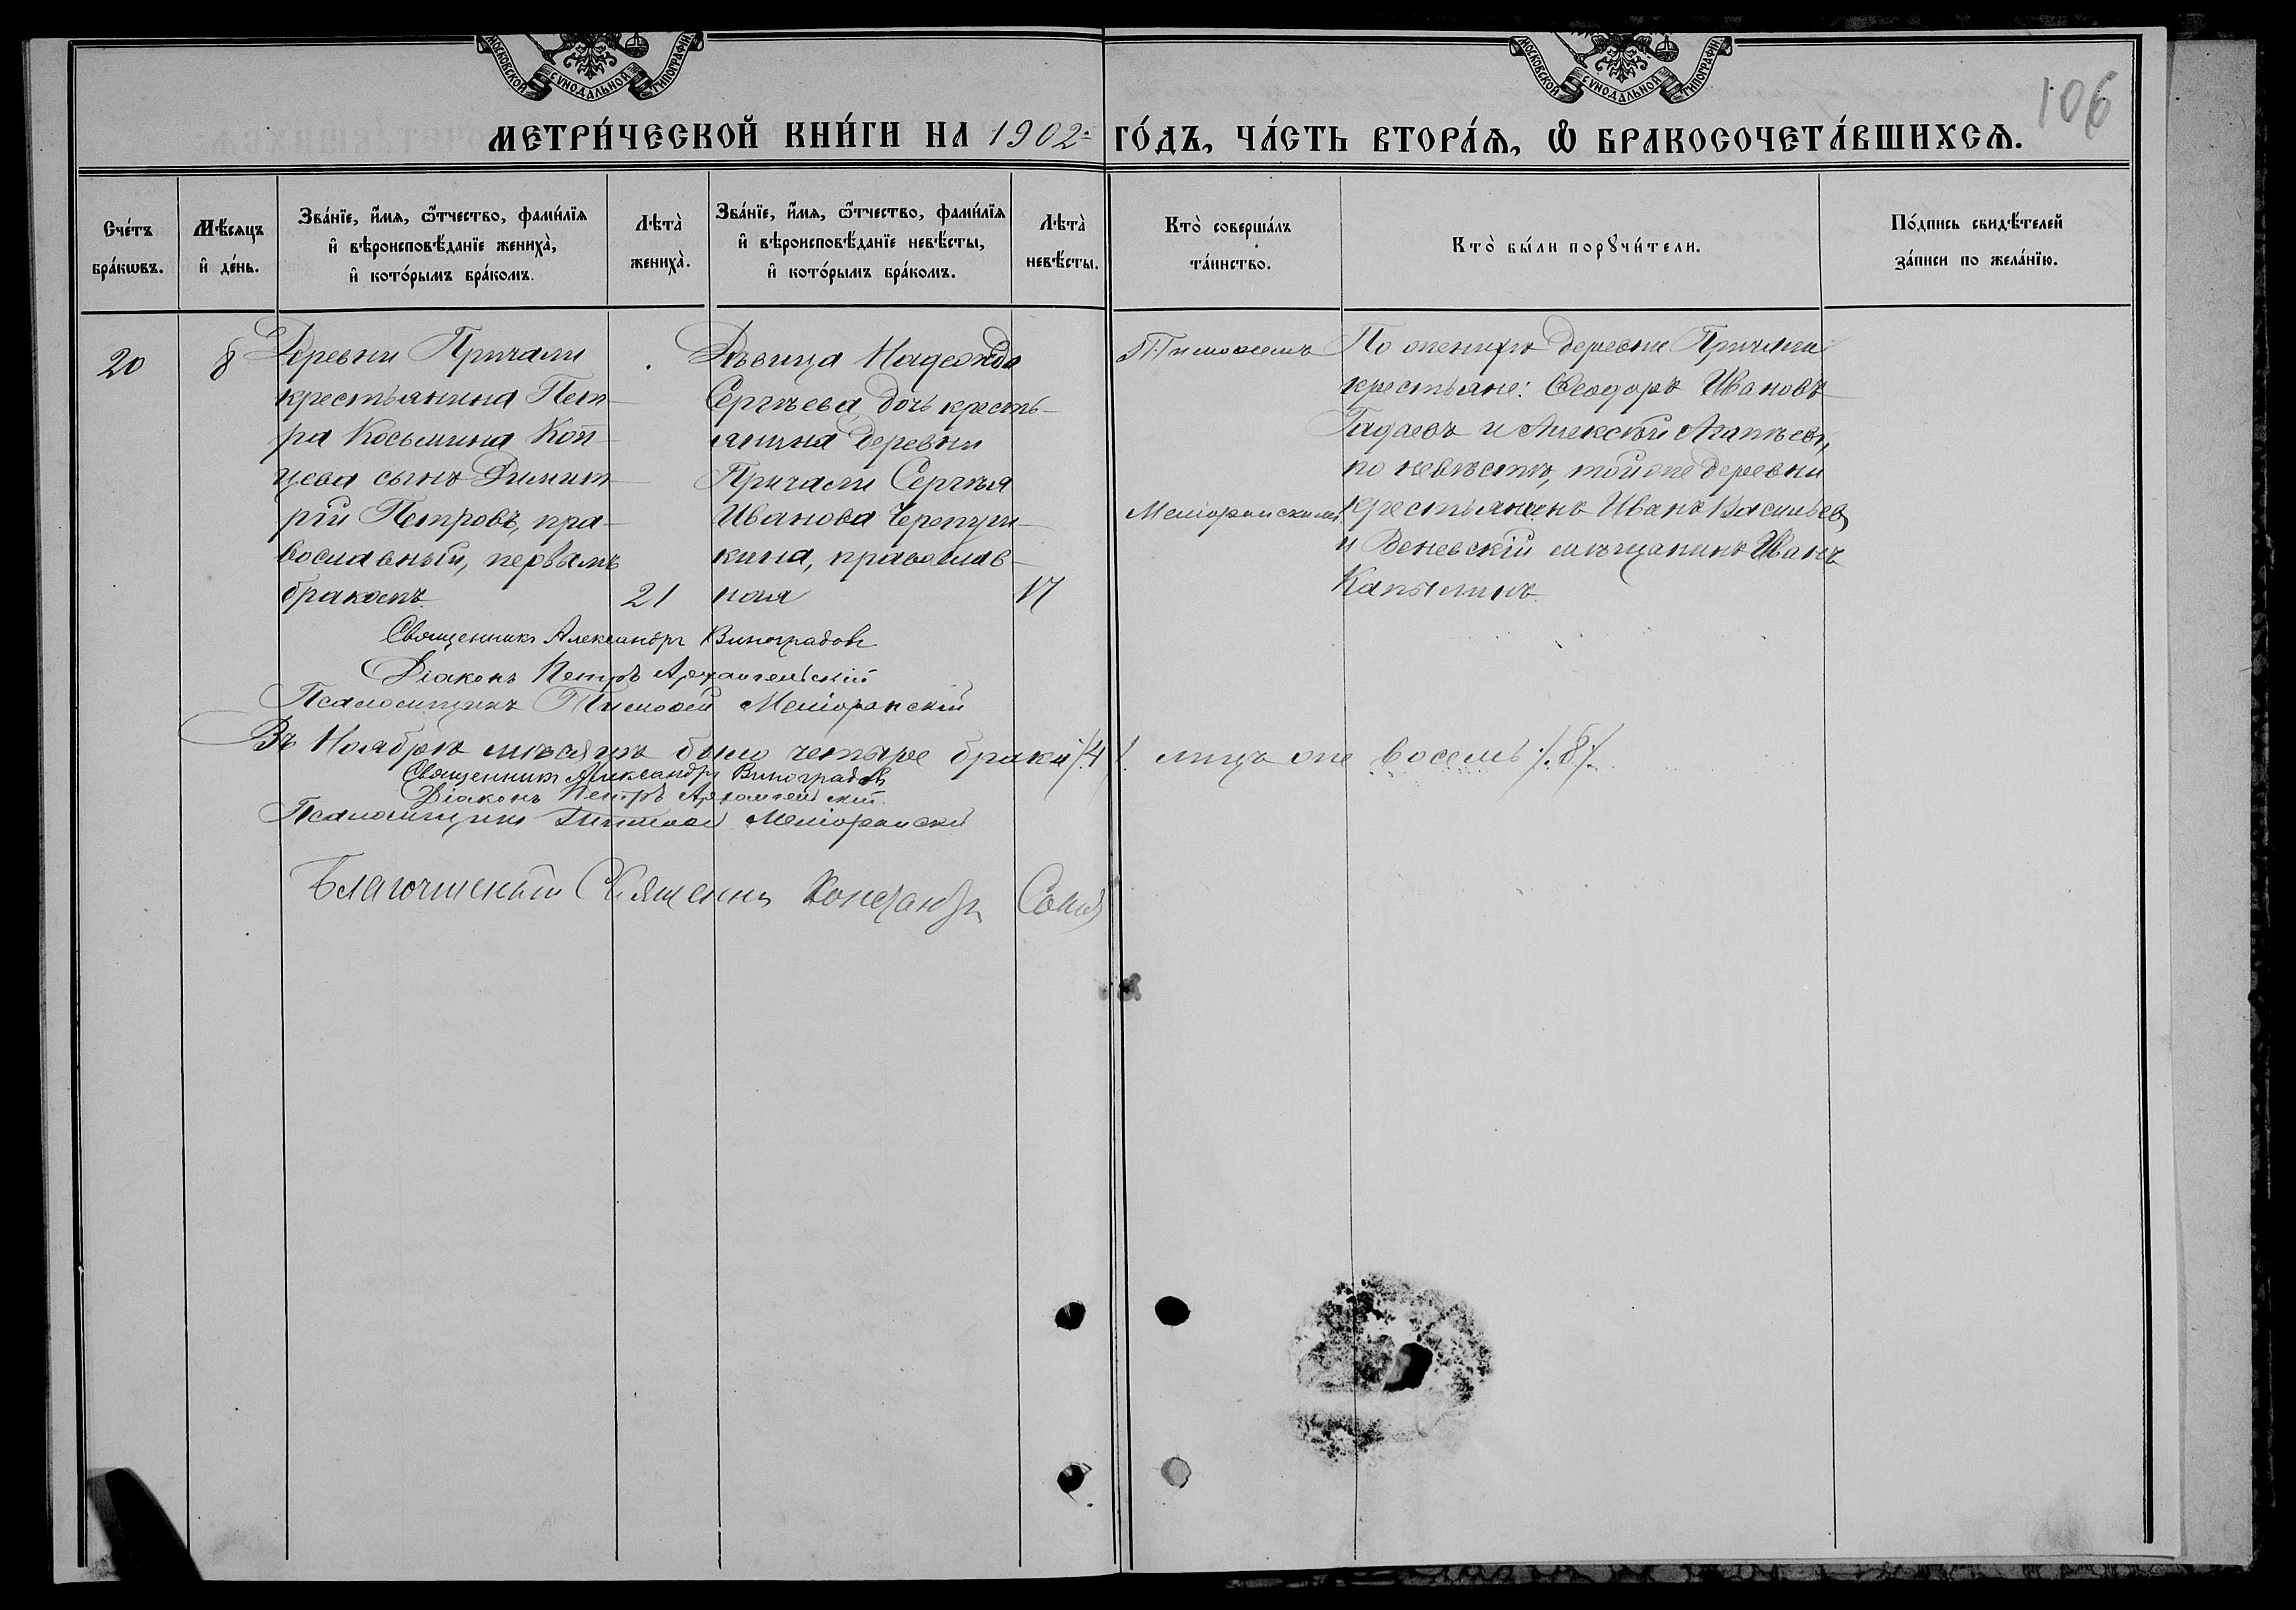 МОСКОВСКОЙ СѴНОДАЛЬНОЙ ТИПОГРАФІИ
МОСКОВСКОЙ СѴНОДАЛЬНОЙ ТИПОГРАФІИ
106
МЕТРИ́ЧЕСКОЙ КНИ́ГИ НА 1902 ГО́ДЪ, ЧА́СТЬ ВТОРА́Ѧ, Ѽ БРАКОСОЧЕТА́ВШИХСѦ.
Сче́тъ
бра́кѡвъ.
Мѣ́сяцъ
и҆ де́нь.
Зва́нїе, и҆́мѧ, ѻ҆́тчество, фами́лїѧ
и҆ вѣроисповѣ́данїе жениха̀,
и҆ кото́рымъ бра́комъ.
Лѣта̀
жениха̀.
Зва́нїе, и҆́мѧ, ѻ҆́тчество, фами́лїѧ
и҆ вѣроисповѣ́данїе невѣ́сты,
и҆ кото́рымъ бра́комъ.
Лѣта̀
невѣ́сты.
Кто̀ соверша́лъ
та́инство.
Кто̀ бы́ли порꙋчи́тели.
По́дпись свидѣ́телей
за́писи по жела́нїю.
20
8
Деревни Причали
крестьянина Пет-
ра Косьмина Коп-
цева сынъ Димит-
рій Петровъ, пра-
вославный, первымъ
бракомъ.
21
Дѣвица Надежда
Сергѣева, дочь кресть-
янина деревни
Причали Сергѣя
Иванова Черепуш-
кина, православ-
ная
17
П. Тимоѳеемъ
Меліоранскимъ
По женихѣ деревни Причали
крестьяне: Ѳеодоръ Ивановъ
и Алексѣй Агапѣевъ,
по невѣстѣ, той же деревни
крестьянинъ Иванъ Васильевъ
и Веневскій мѣщанинъ Иванъ
Капылинъ
Священникъ Александръ Виноградовъ
Діаконъ Петръ Архангельскій
Псаломщикъ Тимоѳей Меліоранскій
Въ Ноябрѣ мѣсяцѣ было четыре брака /.4./ лицъ же восемь /.8./
Священникъ Александръ Виноградовъ
Діаконъ Петръ Архангельскій
Псаломщикъ Тимоѳей Меліоранскій
Благочинный Священникъ